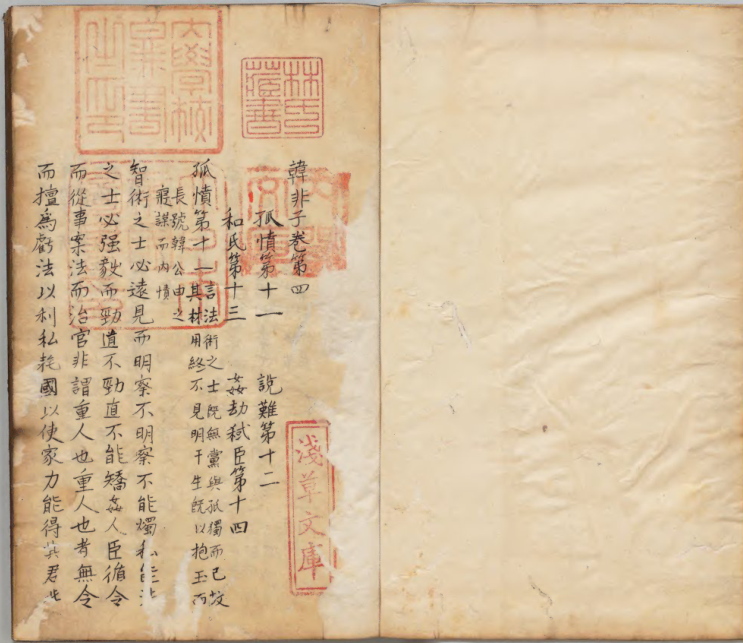 韓非子卷第四
孤憤第十一　說難第十二
和氏第十三　姦劫弒臣第十四
孤憤第十一言法術之士既無黨與孤獨而已故
其材用終不見明卞生既以抱玉而
長號韓公由之
寢謀而內憤
智術之士必遠見而明察不明察不能燭私能法
之士必强毅而勁直不勁直不能矯姦人臣循令
而從事案法而治官非謂重人也重人也者無令
而擅爲虧法以利私耗國以使家力能得其君此
林氏藏書
淺草文庫